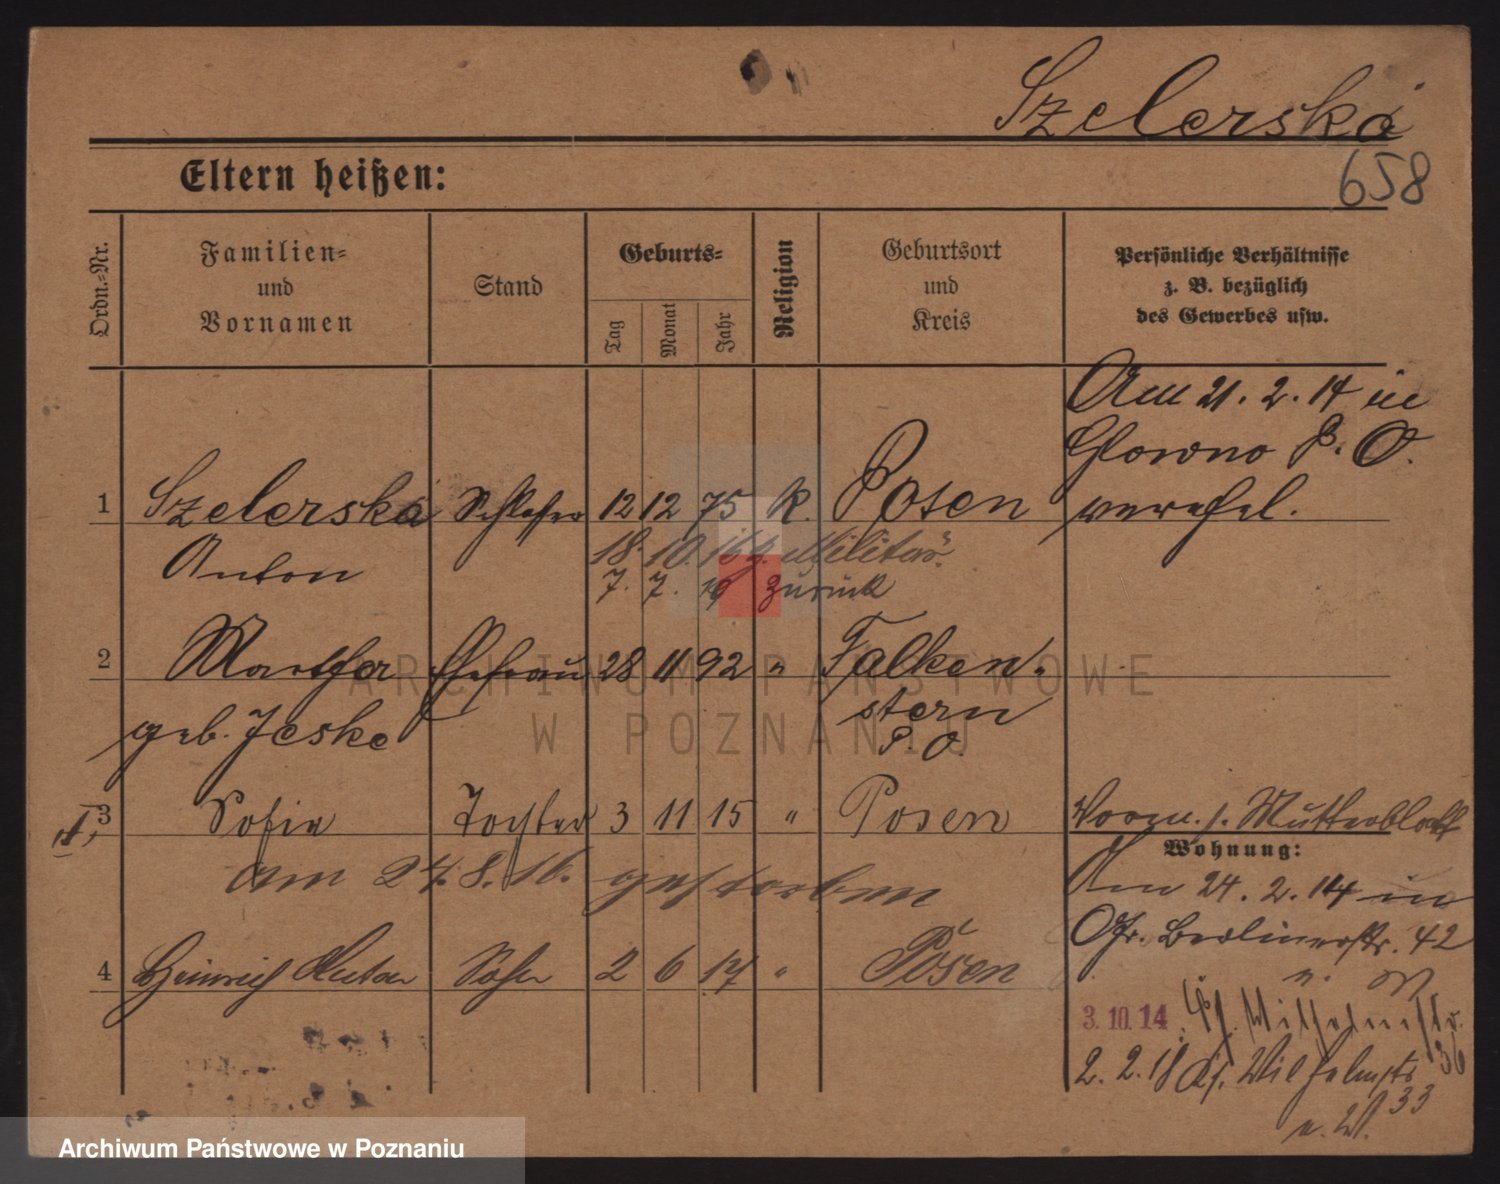 Szelerska
658
Eltern heißen:
Ordn.-Nr.
Familien-
und
Vornamen
Stand
Geburts-
Tag
Monat
Jahr
Religion
Geburtsort
und
Kreis
Persönliche Verhältnisse
z. B. bezüglich
des Gewerbes usw.
Am 21. 2. 14 in
Glowno P. O.
verehel.
1 Szelerska Schlosser 12 12 75 K. Posen
Anton
18. 10. 16 z. Militär
7. 7. zurück
2 Martha Ehefrau 28 11 92 " Falken-
geb. Jeske
stern
P. O.
3 Sofie Tochter 3 11 15 " Posen
am 27. 8. 16. gestorben
Mutterblatt
Wohnung:
Am 24. 2. 14 in
Gr. Berlinerstr. 42
4 Heinrich Anton Sohn 2 6 17 " Posen
3. 10. 14 Wilhelmstr.
36
2. 2. 18 Wilhelmstr
33
ARCHIWUM PAŃSTWOWE
W POZNANIU
Archiwum Państwowe w Poznaniu